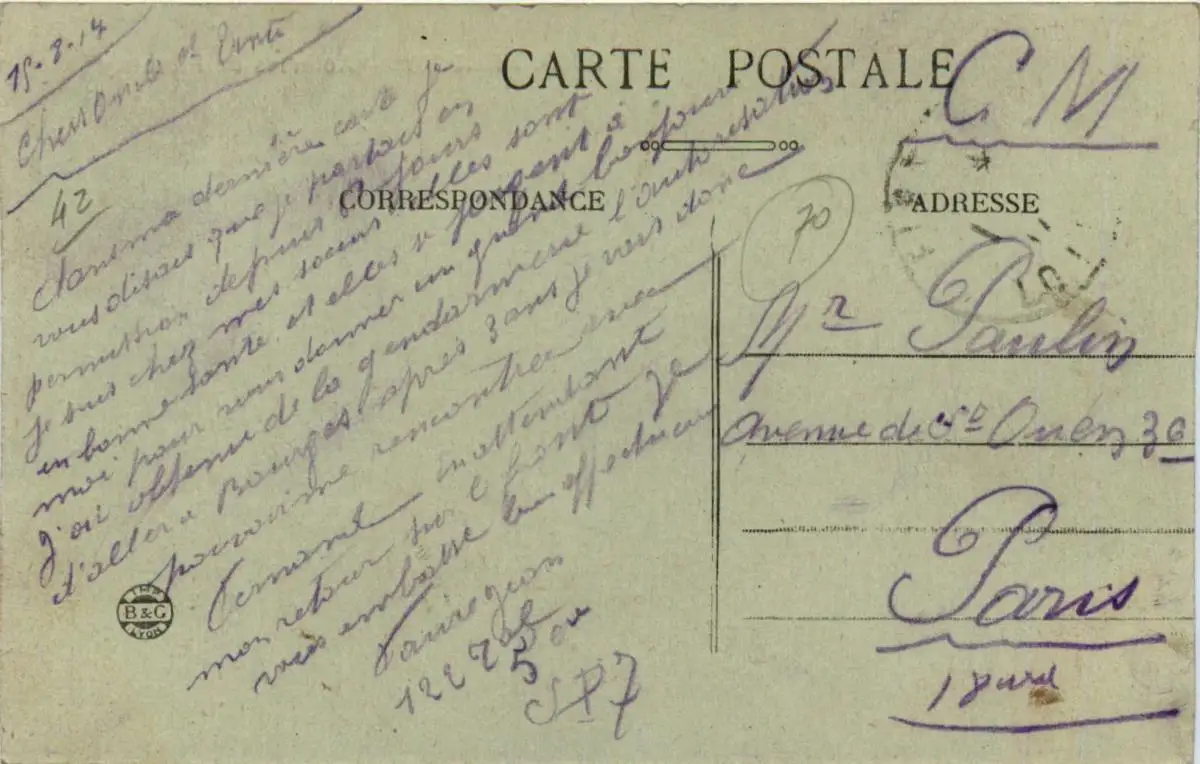 15-8-17
Chers Oncle et Tante
42
dans ma dernière carte je
vous disais que je partais en
permission depuis 2 jours
je suis chez mes soeurs elles sont
en bonne santé et elles se joignent à
moi pour vous donner un bonjour
j'ai obtenu de la gendarmerie l'autorisation
d'aller à Bourges après 3 ans je vais donc
pouvoir me rencontrer avec
Fernand en attendant
mon retour sur le front je
vous embrasse bien affectueux
122
5
SP 7
CARTE POSTALE
CORRESPONDANCE
ADRESSE
C M
70
Mr Paulin
avenue de St Ouen 36
Paris
18
IMP
B & G
LYON